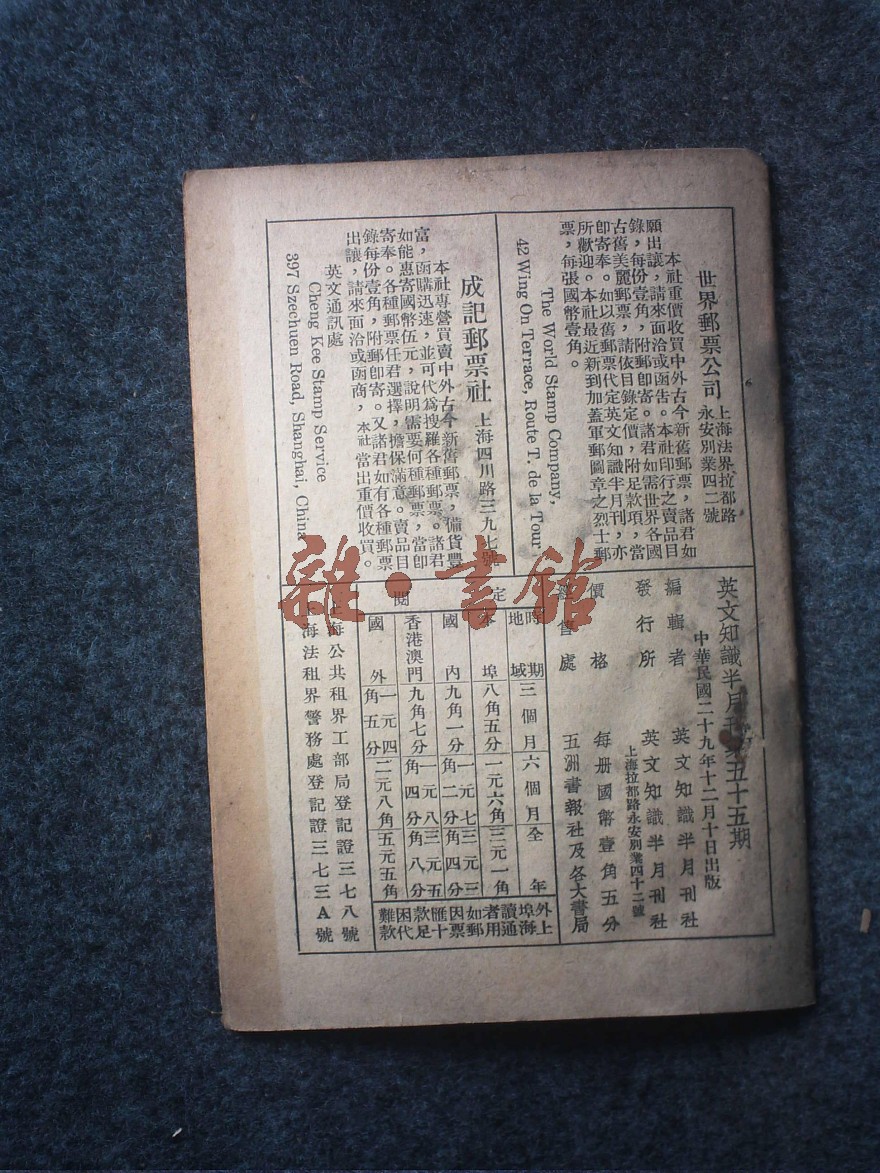 世界郵票公司 上海法界拉都路
永安別業四二號
本社重價收買中外古今新舊郵票，諸君如
願出讓，請來面洽或函告。本社印行之賣品目
錄，每份壹角，附郵卽寄。諸君如需世界各國
古舊美麗郵票，請依目錄定價，附足款項，當
卽寄奉。如以舊郵票代定英文知識半月刊，亦
所歡迎。本社最近新到加蓋軍郵圖章之烈士郵
票，每張國幣壹角。
The World Stamp Company,
42 Wing On Terrace, Route T. de la Tour
成記郵票社 上海四川路三九七號
本社專營買賣中外古今新舊郵票，備貨豐
富，函購迅速，並可代爲搜羅各種郵票。諸君
如能惠寄國幣伍元，說明需要何種郵票，當卽
寄奉。各種郵票任君選擇，擔保滿意。賣品目
錄每份壹角，附郵卽寄。又諸君如有各種郵票
出讓，請來面洽或函商，本社當出重價收買。
英文通訊處
Cheng Kee Stamp Service
397 Szechuen Road, Shanghai, China
英文知識半月刊 五十五期
中華民國二十九年十二月十日出版
編輯者 英文知識半月刊社
發行所 英文知識半月刊社
上海拉都路永安別業四十二號
價格 每册國幣壹角五分
售處 五洲書報社及各大書局
定閱
時期 地域 三個月 六個月 全年
本埠 八角五分 一元六角 三元一角
國內 九角一分 一元七角二分 三元三角四分
香港澳門 九角七分 一元八角四分 三元五角八分
國外 一元四角五分 二元八角 五元五角
外埠讀者如因匯款困難
上海通用郵票十足代款
上海公共租界工部局登記證三七八號
上海法租界警務處登記證三七三A號
雜·書館